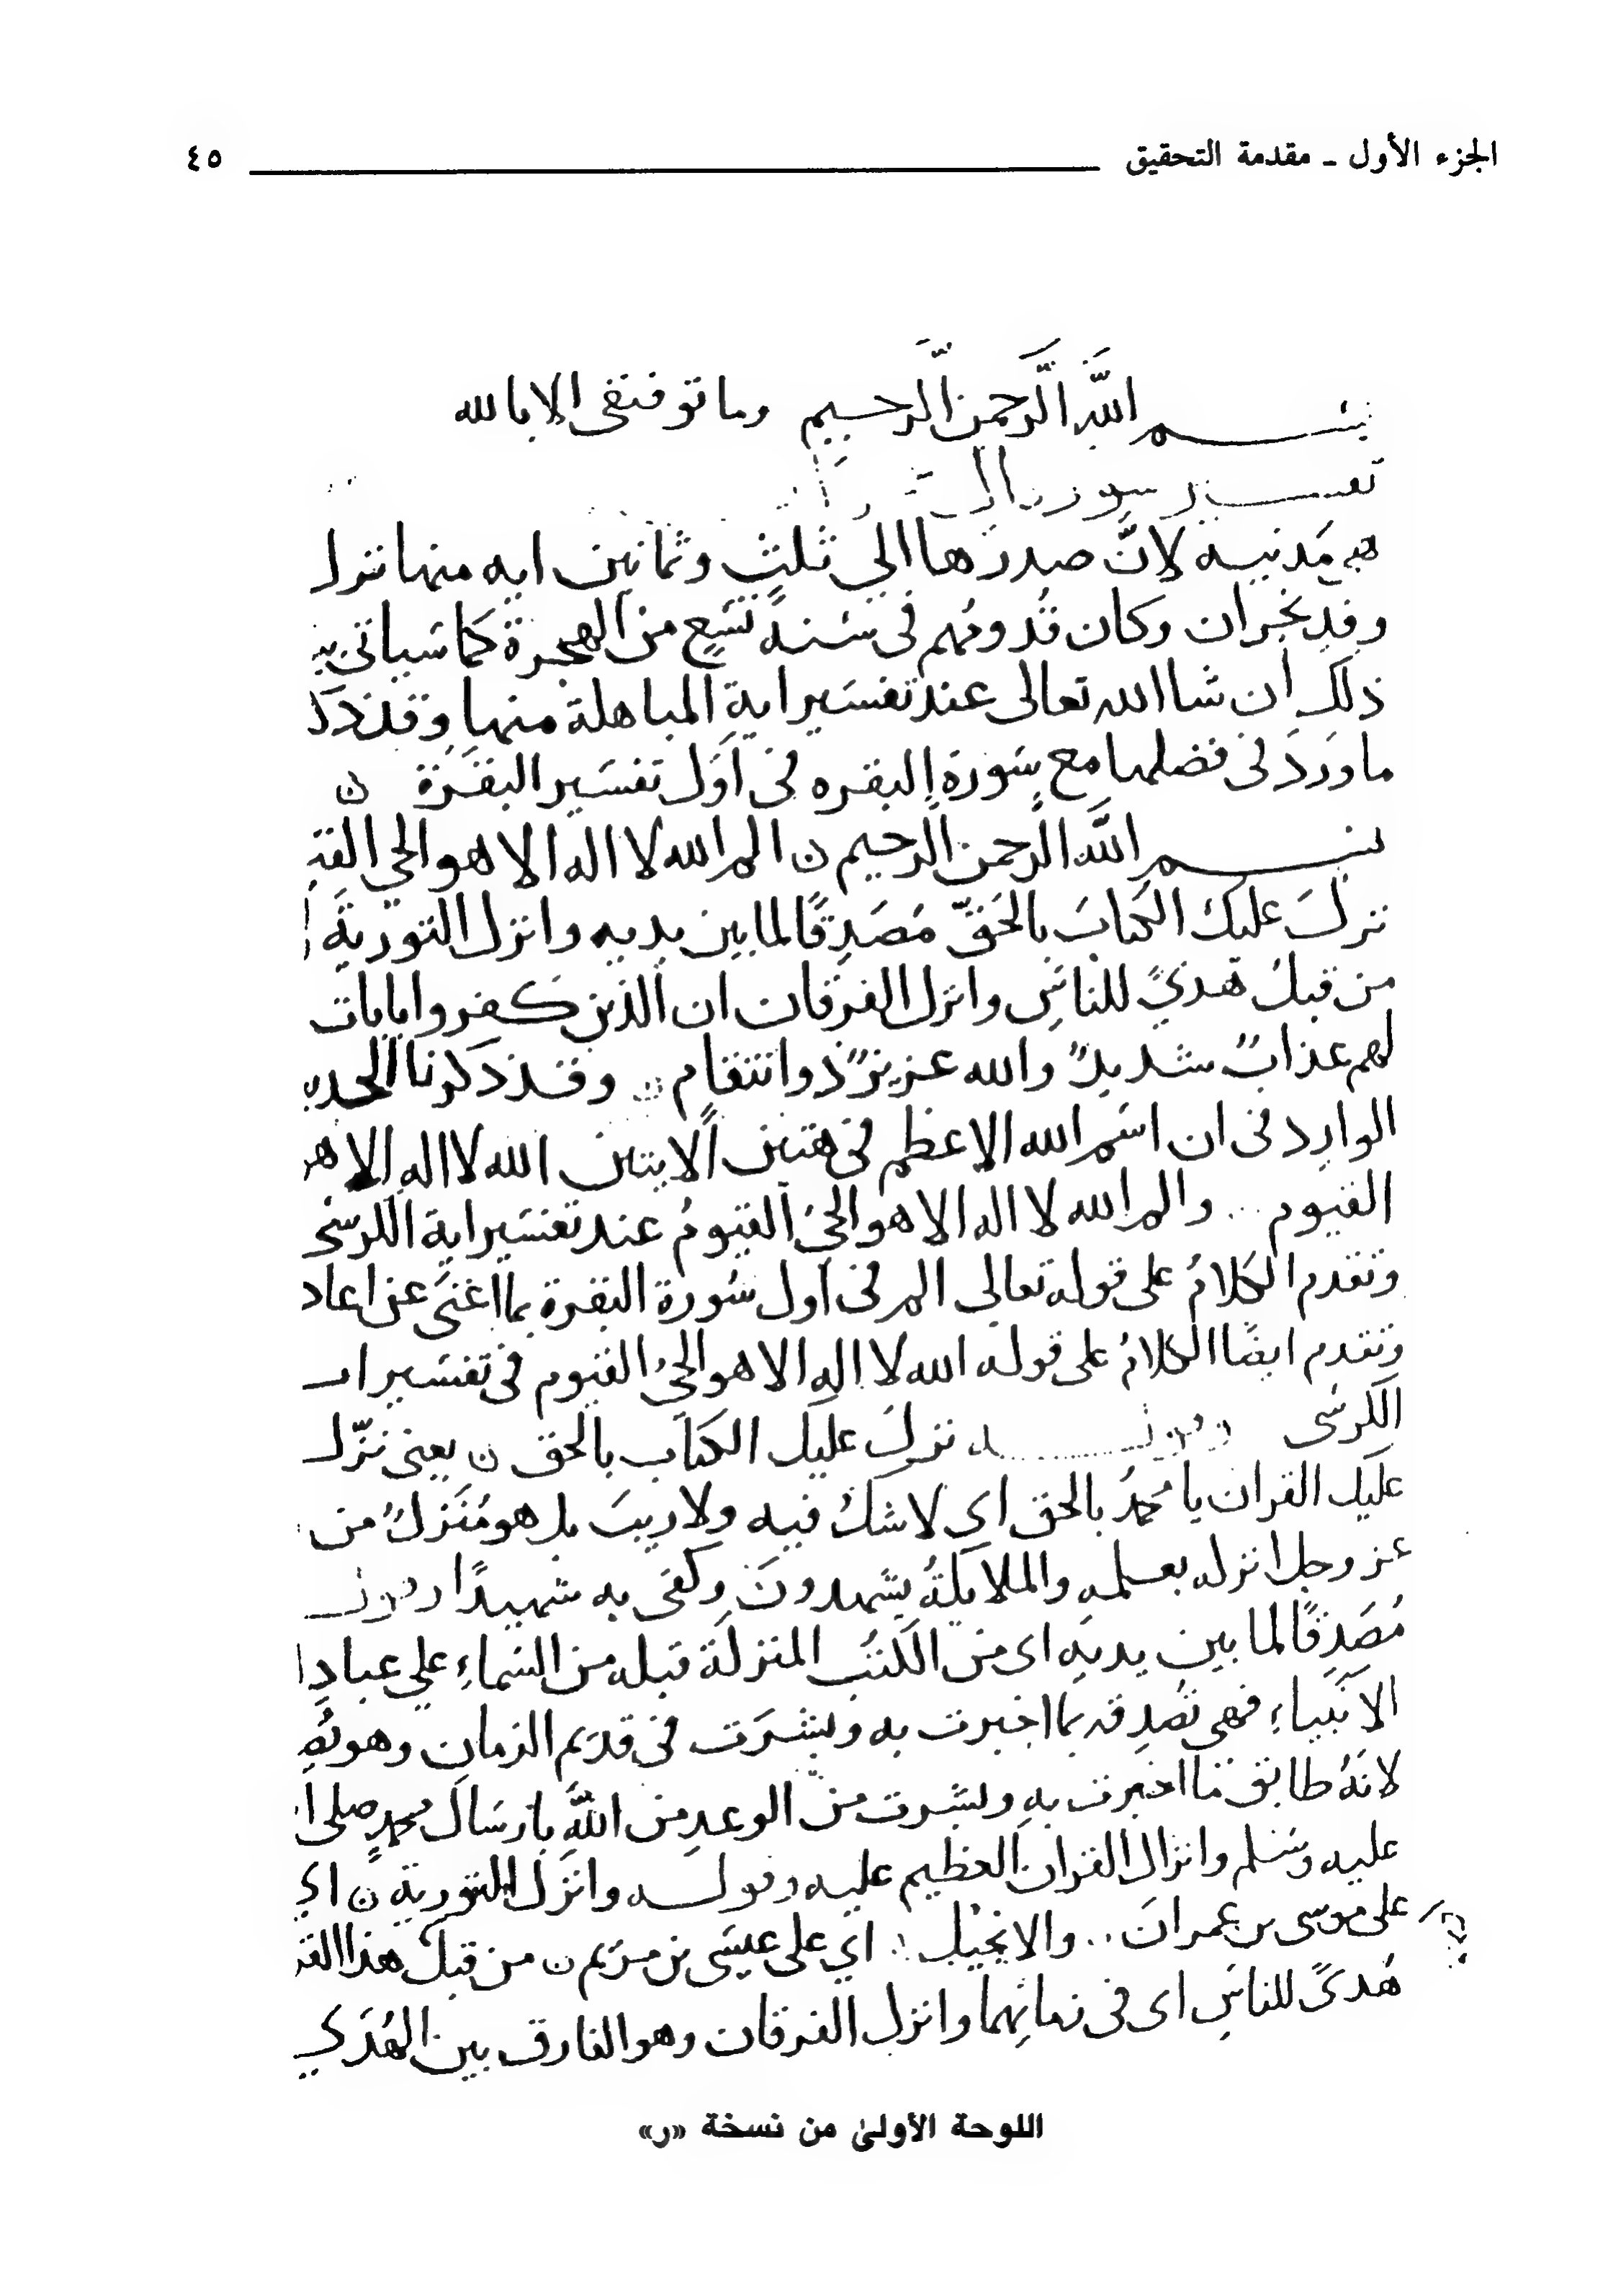 الجزء الأول ـ مقدمة التحقيق ٤٥
بسم اللَّه الرَّحمن الرَّحيم وما توفيقى الا بالله
تفسير سورة
هي مَدنيه لانَّ صدرَها الى ثلثٍ وثمانين ايه منها نزل
وفد نجران وكان قُدومُهم فى سَنة تسَعٍ من الهجرة كما سَياتى
ذلك ان شا الله تعالى عند تفسَير اية المباهلة منها وقد ذكر
ما وَردَ فى فضلها مع سُورة البقره فى اوَل تفسَير البقَرة ن
بسم اللَّه الرحمن الرحيم ن الم الله لا اله الا هو الحي
نزلَ عليك الكتابَ بالحَقّ مُصَدِقًا لما بين يديه وانزل التوريةَ
من قبلُ هُدىً للناسِ وانزل الفرقان ان الذين كفروا بايات
لهم عذابٌ شديدٌ والله عزيزٌ ذو انتقام ن وقد ذكرنا
الوارد فى ان اسَم الله الاعظم فى هتين الايتين الله لا اله الا هو
القيوم .. والم الله لا اله الا هو الحىُ القيومُ عند تفسَير اية الكرسَى
وتقدم الكلامُ على قوله تعالى الم فى اَول سُورة البقرة بما اغنَى عن
وتقدم ايضًا الكلامُ على قوله الله لا اله الا هو الحىُ القيوم فى تفسَير
الكرسَى وقوله نزلَ عليك الكتاَب بالحق ن يعنى نزّل
عليك القران يا محمدُ بالحق اى لا شكَ فيه ولا ريبَ بل هو مُنَزلٌ من
عز وجل انزله بعلمه والملايكةُ يشَهدونَ وكفى به شهيدًا وقوله
مُصَدِقًا لما بين يديهِ اى من الكتُب المنزلَة قبله من السَماءِ على عبادِ
الانَبياءِ فهى تصُدِقه بما اخبرت به وبشرَت فى قديَم الزمان وهو
لانهُ طابق ما اخبرت بهِ وبشَرت من الوعدِ من اللَّهِ بارسَال محمدٍ صلى
عليه وسَلم وانزال القران العظيم عليه وقوله وانزَل التورية ن اى
على موسى بن عمرانَ .. والانجيْل اي على عيسَى بن مريَم ن من قبل هذا
هُدىً للناسِ اى فى زمانِهما وانزل الفرقان وهو الفارق بين الهُدَى
اللوحة الأولىٰ من نسخة «ر»